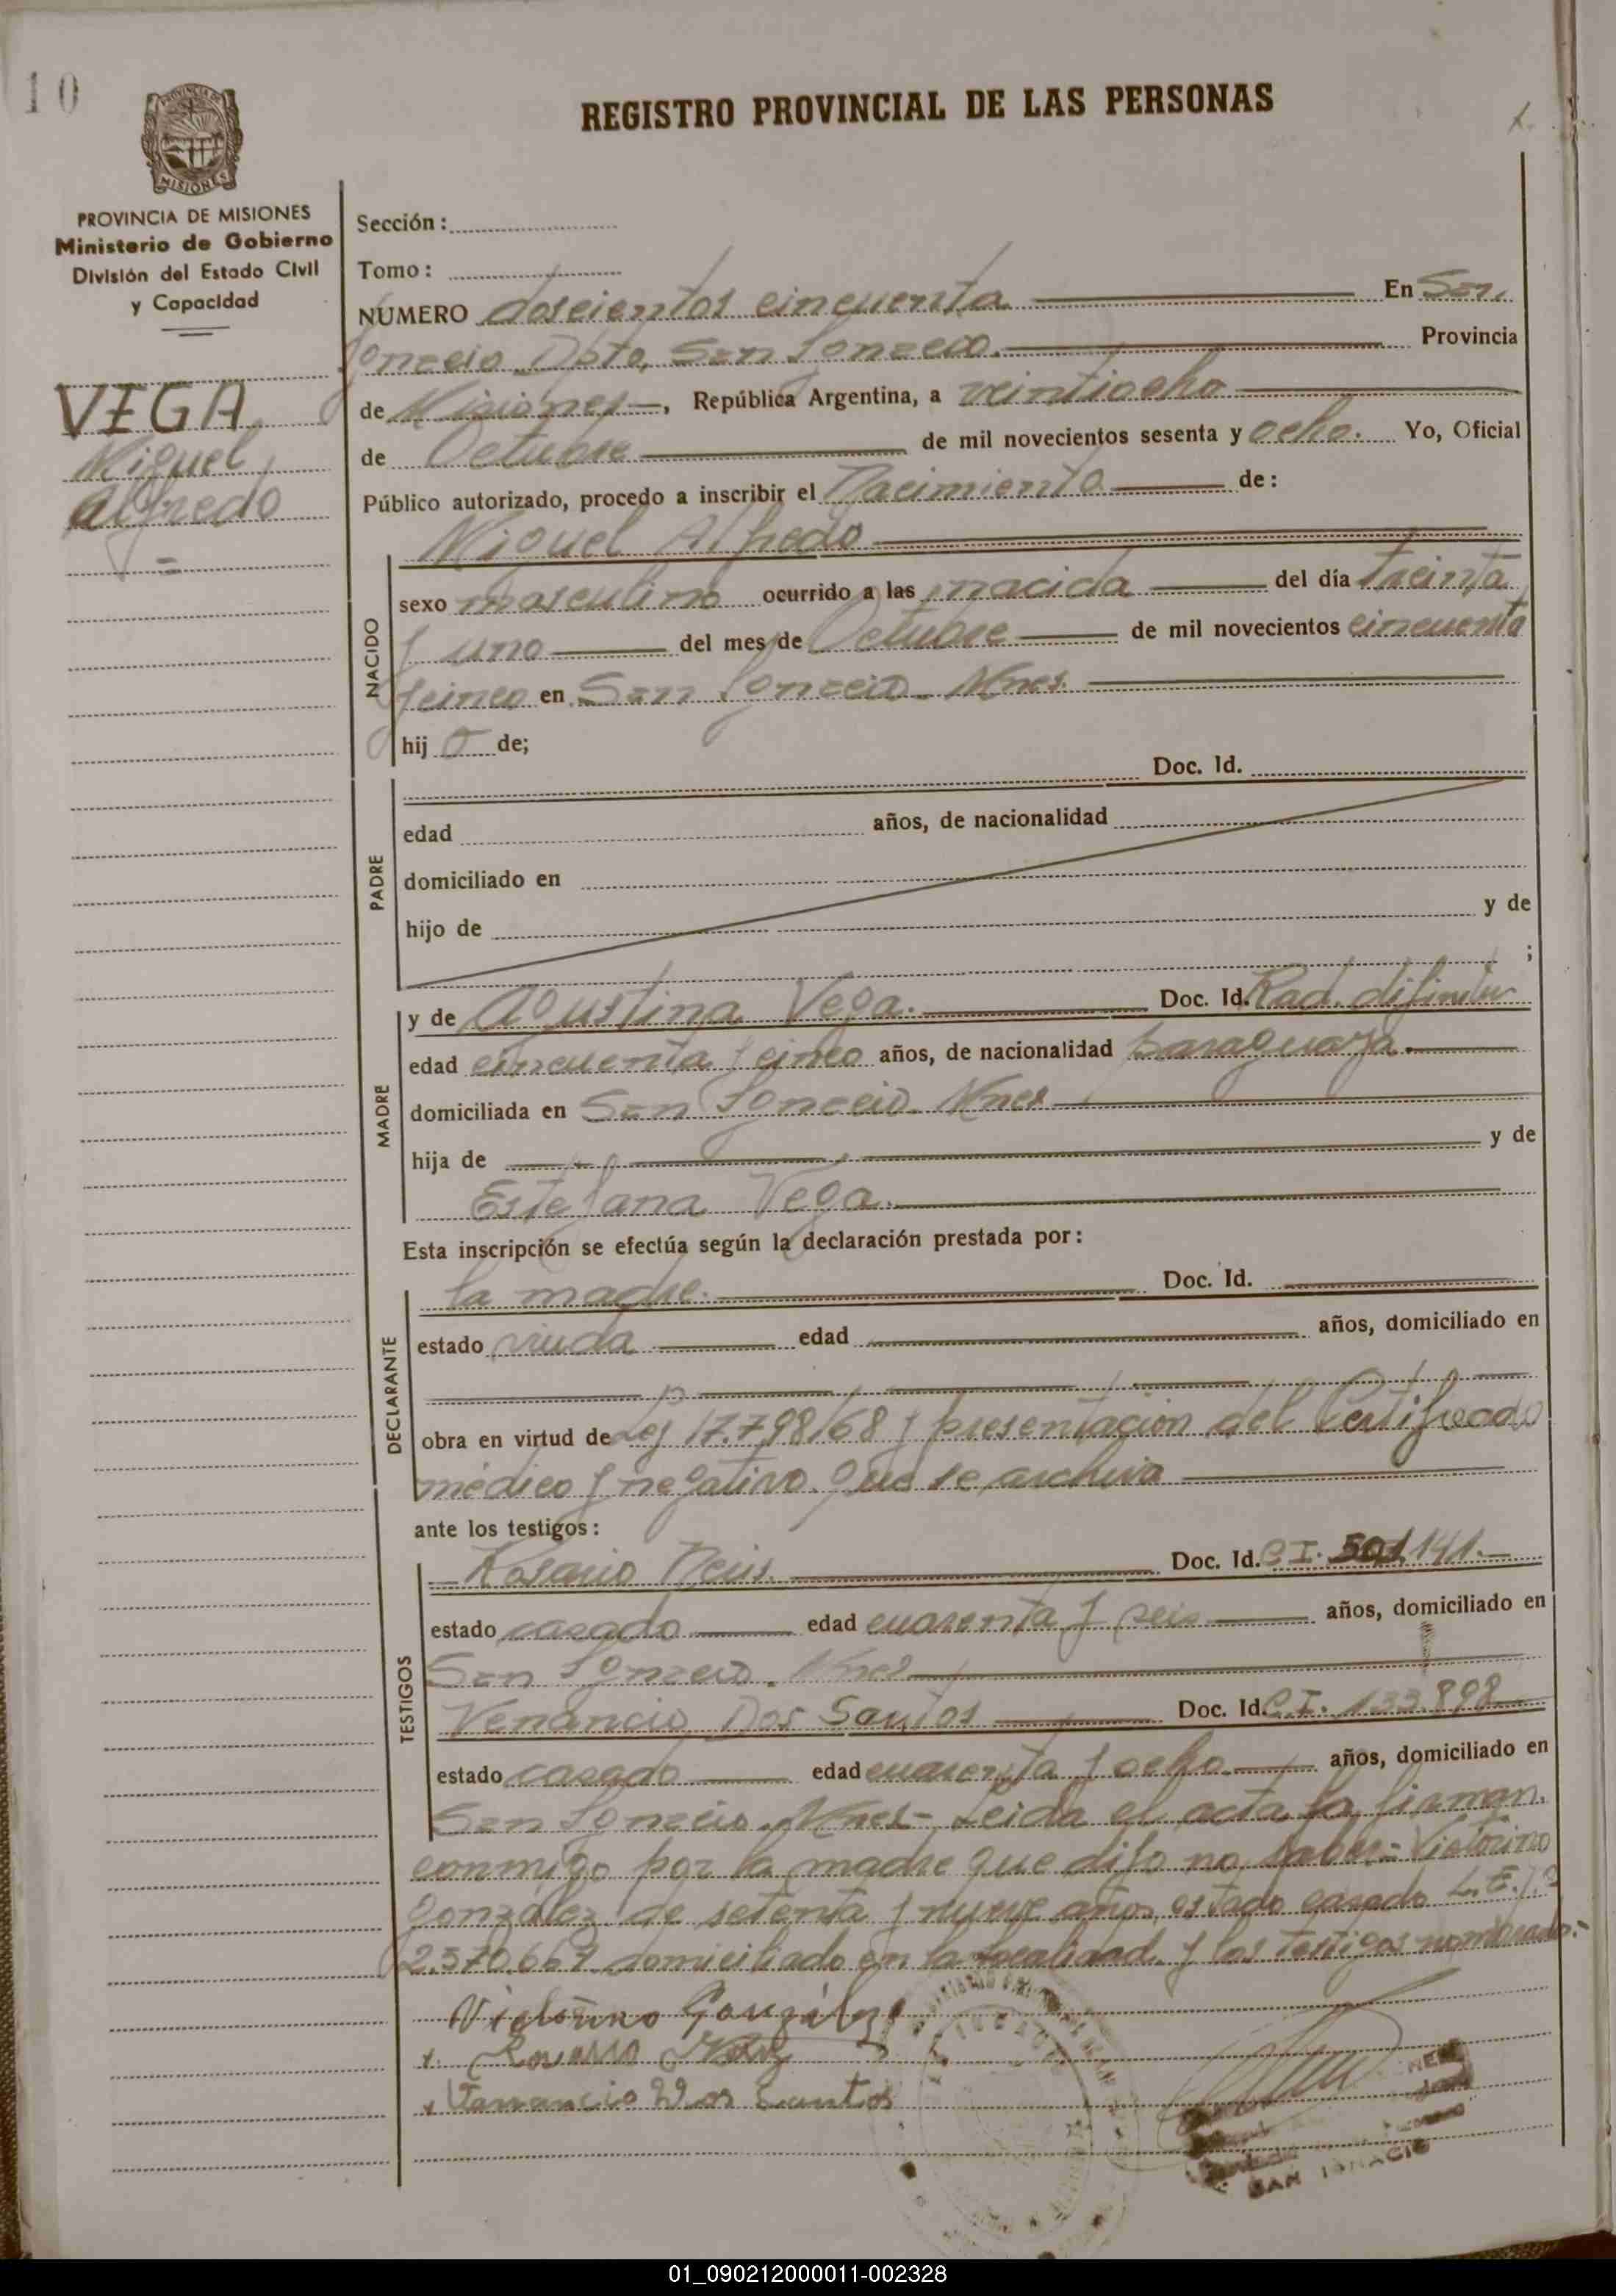 10
REGISTRO PROVINCIAL DE LAS PERSONAS
PROVINCIA DE
MISIONES
PROVINCIA DE MISIONES
Ministerio de Gobierno
División del Estado Civil
y Capacidad
VEGA
Miguel
Alfredo
Sección:
Tomo:
NÚMERO doscientos cincuenta En San
Ignacio Dpto. San Ignacio. Provincia
de Misiones, República Argentina, a veintiocho
de Octubre de mil novecientos sesenta y ocho. Yo, Oficial
Público autorizado, procedo a inscribir el Nacimiento de:
Miguel Alfredo
NACIDO
sexo masculino ocurrido a las nacida del día treinta
y uno del mes de Octubre de mil novecientos cincuenta
y cinco en San Ignacio. Mnes.
hij o de;
PADRE
Doc. Id.
edad años, de nacionalidad
domiciliado en
hijo de y de
;
MADRE
y de Agustina Vega. Doc. Id. Rad.
edad cincuenta y cinco años, de nacionalidad paraguaya.
domiciliada en San Ignacio. Mnes
hija de y de
Estefana Vega.
Esta inscripción se efectúa según la declaración prestada por:
DECLARANTE
la madre. Doc. Id.
estado viuda edad años, domiciliado en
obra en virtud de Ley 17.798/68 y presentación del Certificado
médico y negativo que se archiva
ante los testigos:
TESTIGOS
Rosario Doc. Id. C.I. 501.141.
estado casado edad cuarenta y seis años, domiciliado en
San Ignacio. Mnes
Venancio Dos Santos Doc. Id. C.I. 133.898
estado casado edad cuarenta y ocho años, domiciliado en
San Ignacio. Mnes- Leida el acta la firman.
conmigo por la madre que dijo no saber- Victorino
González de setenta y nueve años, estado casado L.E.
2.570.667 domiciliado en la localidad y los testigos nombrados.-
Victorino González
x. Rosario
x Venancio Dos Santos
SAN IGNACIO
01_090212000011-002328